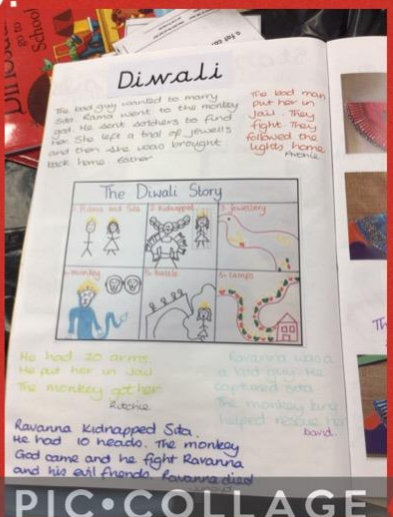 go to
School
Diwali
The bad guy wanted to marry
Sita. Rama went to the monkey
god. He sent to find
her. She left a trial of jewells
and then she was brought
back home.
The bad man
put her in
jail. They
fight. They
followed the
lights home.
Archie
The Diwali Story
1. Rama and Sita
2. Kidnapped
3. Jewellery
4. monkey
5. battle
6. Lamps
He had 20 arms.
He put her in Jail
The monkey got her
Ritchie
Ravanna was a
a bad guy. He
captured Sita
The monkey king
helped rescue her
David.
Ravanna Kidnapped Sita.
He had 10 heads. The monkey
God came and he fight Ravanna
and his evil friends. Ravanna died
Th
PIC•COLLAGE